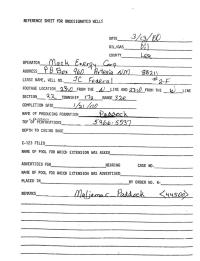 REFERENCE SHEET FOR UNDESIGNATED WELLS
DATE 3/13/00
OIL/GAS Oil
COUNTY Lea
OPERATOR Mack Energy Corp
ADDRESS PO Box 960 Artesia NM 88211
LEASE NAME, WELL NO. JC Federal #2-F
FOOTAGE LOCATION FROM THE N LINE AND FROM THE W LINE
SECTION 22 TOWNSHIP 17s RANGE 32e
COMPLETION DATE 1/31/00
NAME OF PRODUCING FORMATION Paddock
TOP OF PERFORATIONS
DEPTH TO CASING SHOE
C-123 FILED
NAME OF POOL FOR WHICH EXTENSION WAS ASKED
ADVERTISED FOR HEARING CASE NO.
NAME OF POOL FOR WHICH EXTENSION WAS ADVERTISED
PLACED IN BY ORDER NO. R-
REMARKS Maljamar Paddock <44500>